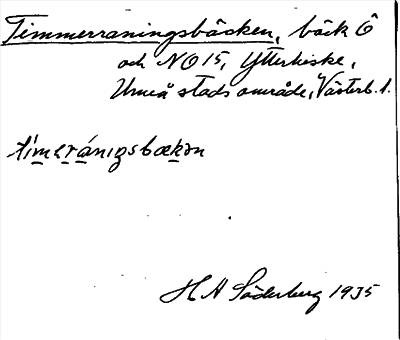 Timmerraningsbäcken, bäck Ö
och NO 15, Ytterhiske,
Umeå stadsområde, Västerb. l.
timeránigsbækən
H A Söderberg 1935